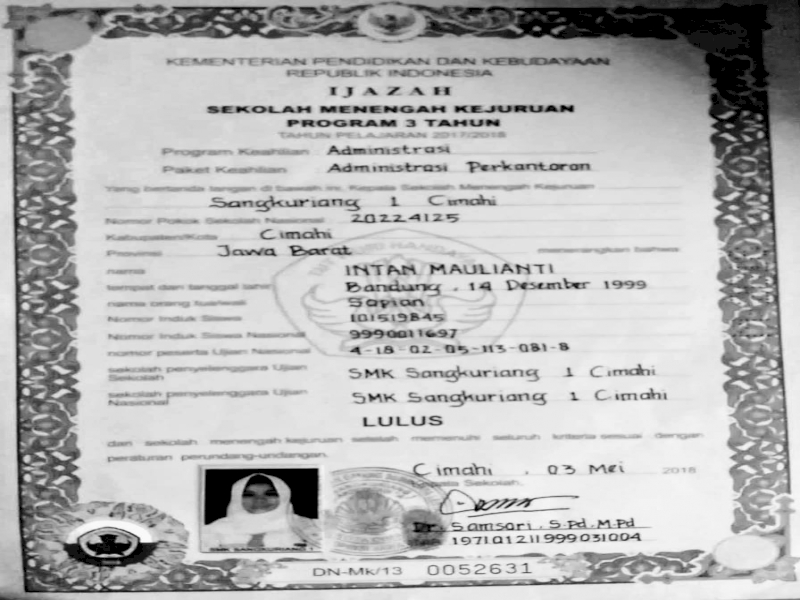 KEMENTERIAN PENDIDIKAN DAN KEBUDAYAAN
REPUBLIK INDONESIA
IJAZAH
SEKOLAH MENENGAH KEJURUAN
PROGRAM 3 TAHUN
TAHUN PELAJARAN 2017/2018
Program Keahlian : Administrasi
Paket Keahlian : Administrasi Perkantoran
Yang bertanda tangan di bawah ini, Kepala Sekolah Menengah Kejuruan
Sangkuriang 1 Cimahi
Nomor Pokok Sekolah Nasional : 20224125
Kabupaten/Kota Cimahi
Provinsi Jawa Barat menerangkan bahwa
nama INTAN MAULIANTI
tempat dan tanggal lahir Bandung, 14 Desember 1999
nama orang tua/wali Sopian
Nomor Induk Siswa 101519845
Nomor Induk Siswa Nasional 9990011697
nomor peserta Ujian Nasional 4-18-02-05-113-081-8
sekolah penyelenggara Ujian Sekolah SMK Sangkuriang 1 Cimahi
sekolah penyelenggara Ujian Nasional SMK Sangkuriang 1 Cimahi
LULUS
dari sekolah menengah kejuruan setelah memenuhi seluruh kriteria sesuai dengan
peraturan perundang-undangan.
Cimahi, 03 Mei 2018
Kepala Sekolah,
Dr. Samsari, S.Pd, M.Pd
197101211999031004
SMK SANGKURIANG 1
DN-Mk/13 0052631